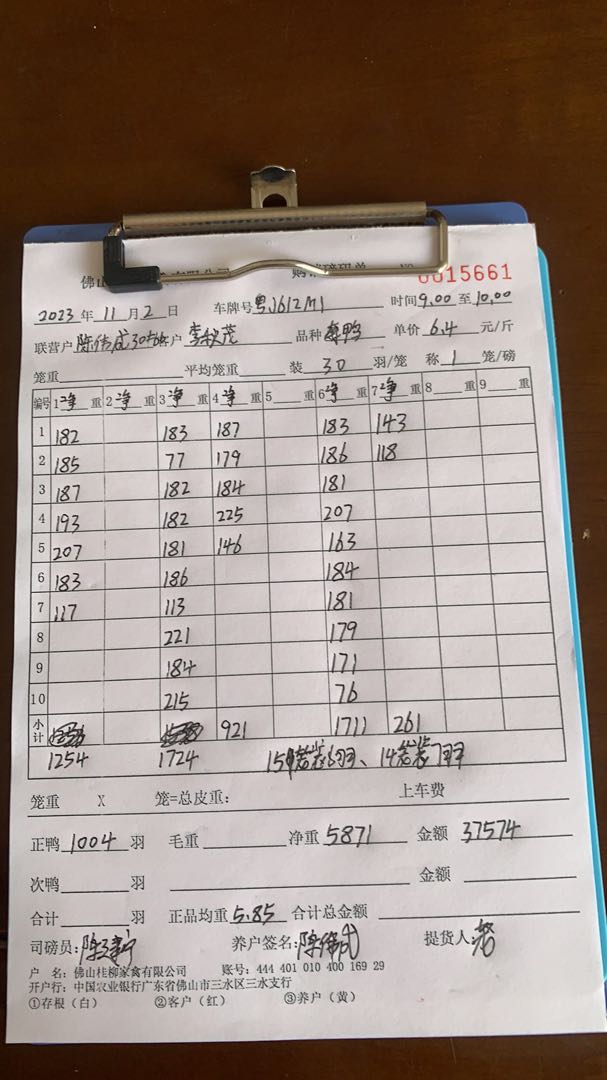 佛山
0015661
2023 年 11 月 2 日 车牌号 粤J612M1 时间 9.00 至 10.00
联营户 陈伟成 客户 品种 单价 6.4 元/斤
笼重 平均笼重 装 30 羽/笼 称 1 笼/磅
编号 1 净 重 2 净 重 3 净 重 4 净 重 5 重 6 净 重 7 净 重 8 重 9 重
1 182 183 187 183 143
2 185 77 179 186 118
3 187 182 184 181
4 193 182 225 207
5 207 181 146 163
6 183 186 184
7 117 113 181
8 221 179
9 184 171
10 215 76
小计 921 1711 261
1254 1724
笼重 X 笼=总皮重: 上车费
正鸭 1004 羽 毛重 净重 5871 金额 37574
次鸭 羽 金额
合计 羽 正品均重 5.85 合计总金额
司磅员: 养户签名: 陈伟成 提货人:
户 名: 佛山桂柳家禽有限公司 账号: 444 401 010 400 169 29
开户行: 中国农业银行广东省佛山市三水区三水支行
①存根（白） ②客户（红） ③养户（黄）